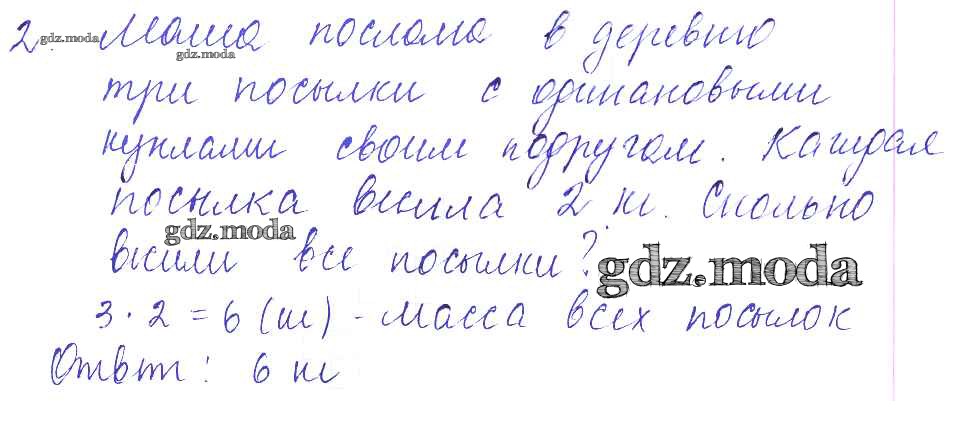 2. Маша послала в деревню
три посылки с одинаковыми
куклами своим подругам. Каждая
посылка весила 2 кг. Сколько
весили все посылки?
3 · 2 = 6 (кг) - масса всех посылок
Ответ: 6 кг
gdz.moda
gdz.moda
gdz.moda
gdz.moda